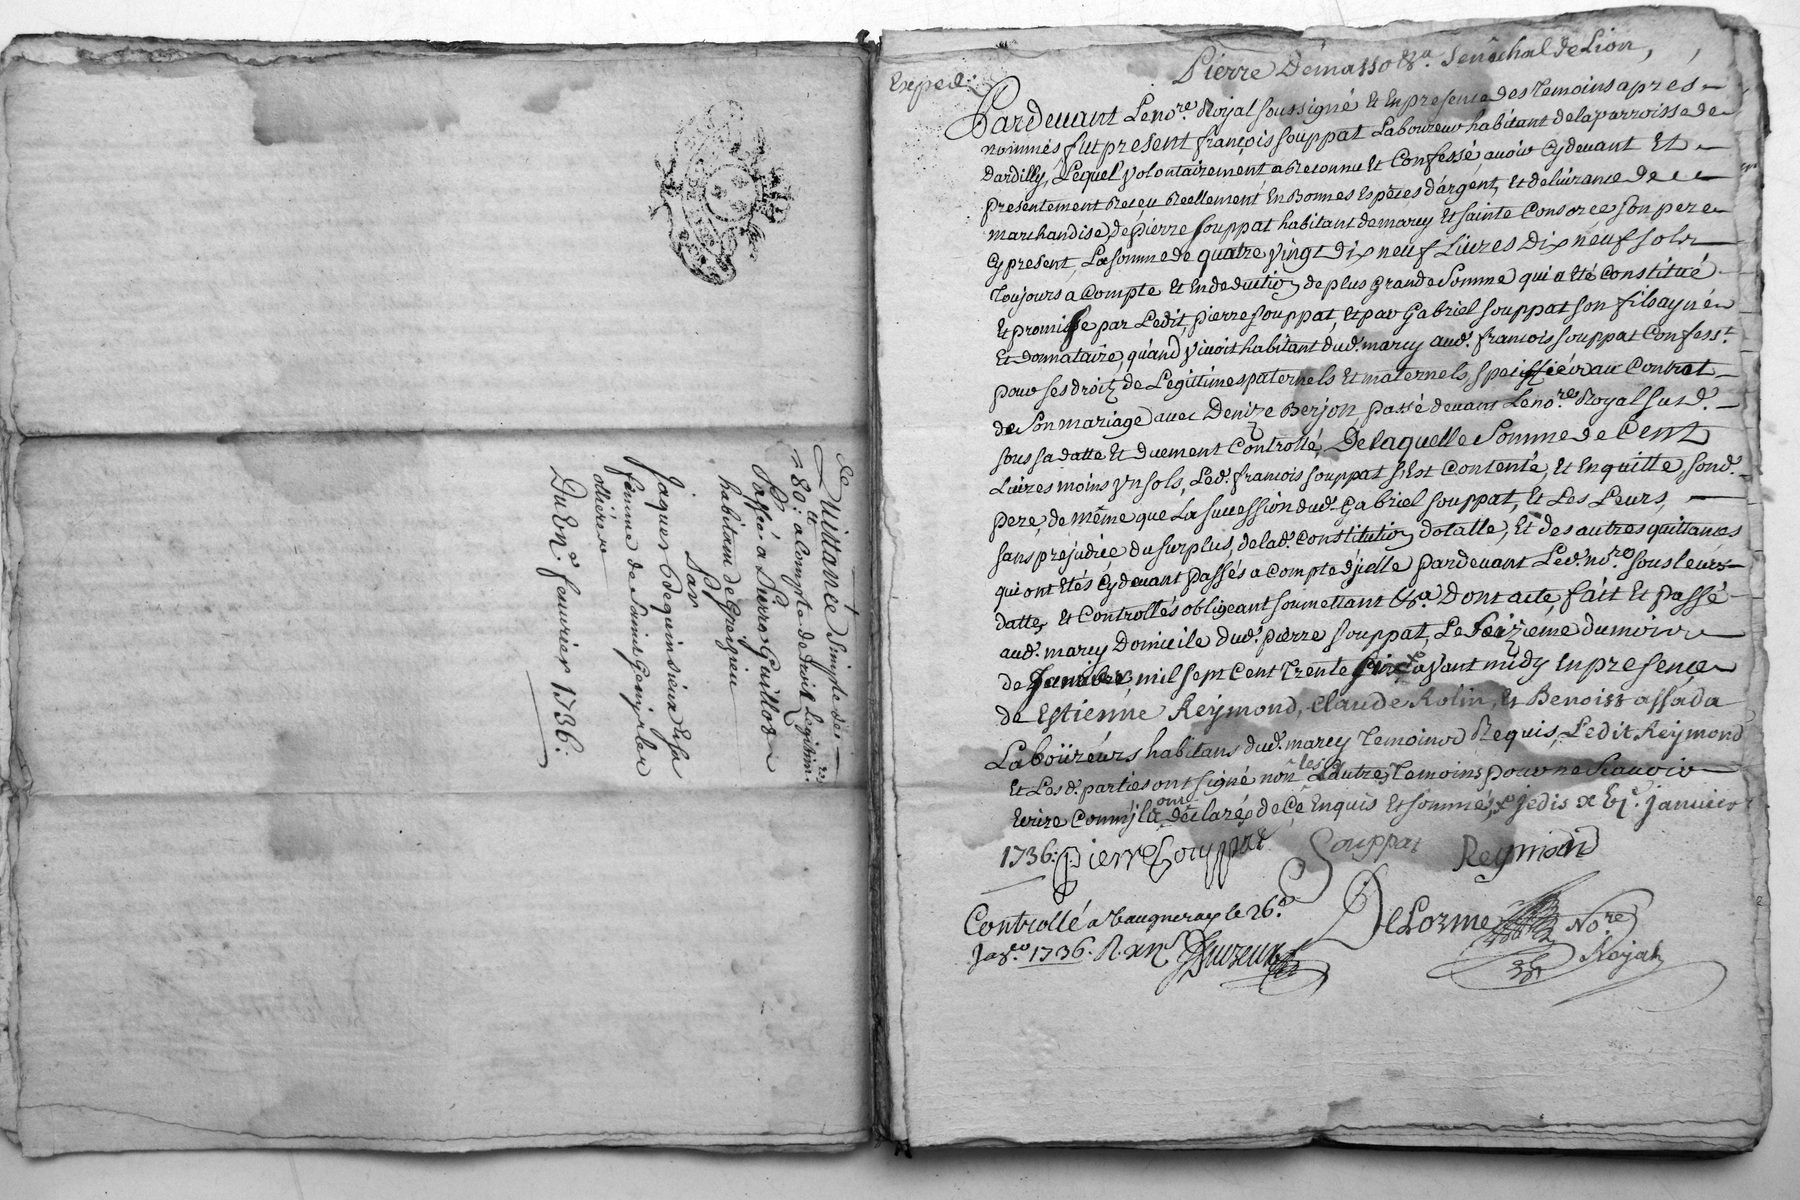 de
Quittance Simple de
80: ₶ a Compte de droit Legitim.res
Passé a Pierre Guillot
habitant de Grezieu
Par
Jaques Dequinsieux
femme de Saint Genis les
ollieres
Du 2.e feuvrier 1736.
Exped.
Pierre Demasso &.a Senêchal de Lion,
Pardeuant Le no.re Royal soussigné Et En presence des temoins apres
nommés fut present françois souppat Laboureur habitant de la parroisse de
dardilly, Lequel volontairement a Reconnu Et Confessé, auoir Cy deuant Et
presentement Reçeu Reellement En Bonnes Espèces d'argent, Et deliurance de
marchandise, de pierre souppat habitant de marcy Et sainte Consorce son pere
Cy present, La somme de quatre vingt dix neuf Liures Dix neuf sols
Toujours a Compte Et En deduction de plus Grande Somme qui a Eté Constitué
Et promise par Ledit pierre souppat, Et par Gabriel souppat son fils ayné
Et donnataire, quand viuoit habitant dud. marcy aud. francois souppat Confess.t
pour ses droitz de Legittimes paternels Et maternels, speiffiés au Contrat
de Son mariage auec Denize Berjon passé deuant Le no.re Royal susd.
sous sa datte Et duement Controllé, De laquelle Somme de Cent
Liures moins vn sols, Led. francois souppat s'Est Contenté, Et En quitte, sond.
pere, de même que La succession dud. Gabriel souppat, Et Les Leurs,
sans prejudice du surplus, de lad. constitution dotalle, Et des autres quittances
qui ont Etés Cy deuant passés a compte d'jcelle pardeuant Led. no.re sous leurs
dattes Et Controllés obligeant soumettant &.a Dont acte, fait Et passé
aud. marcy Domicile dud. pierre souppat, Le seizieme du mois
de Januier, mil sept Cent Trente six avant midy En presence
de Estienne Reymond, Claude Rolin, Et Benoist assada
Laboüreurs habitans dud. marcy Temoins Requis, Ledit Reymond
Et Lesd. parties ont signé non les L'autres Temoins pour ne Scauoir
Ecrire Comm'jls ont déclarés de Cé Enquis Et sommés, Lejedis x vj.e januier
1736: Pierre Souppat Souppat Reymond
Controllé a Vaugneray le 26.e DeLorme No.re
Ja.er 1736. R. Royal